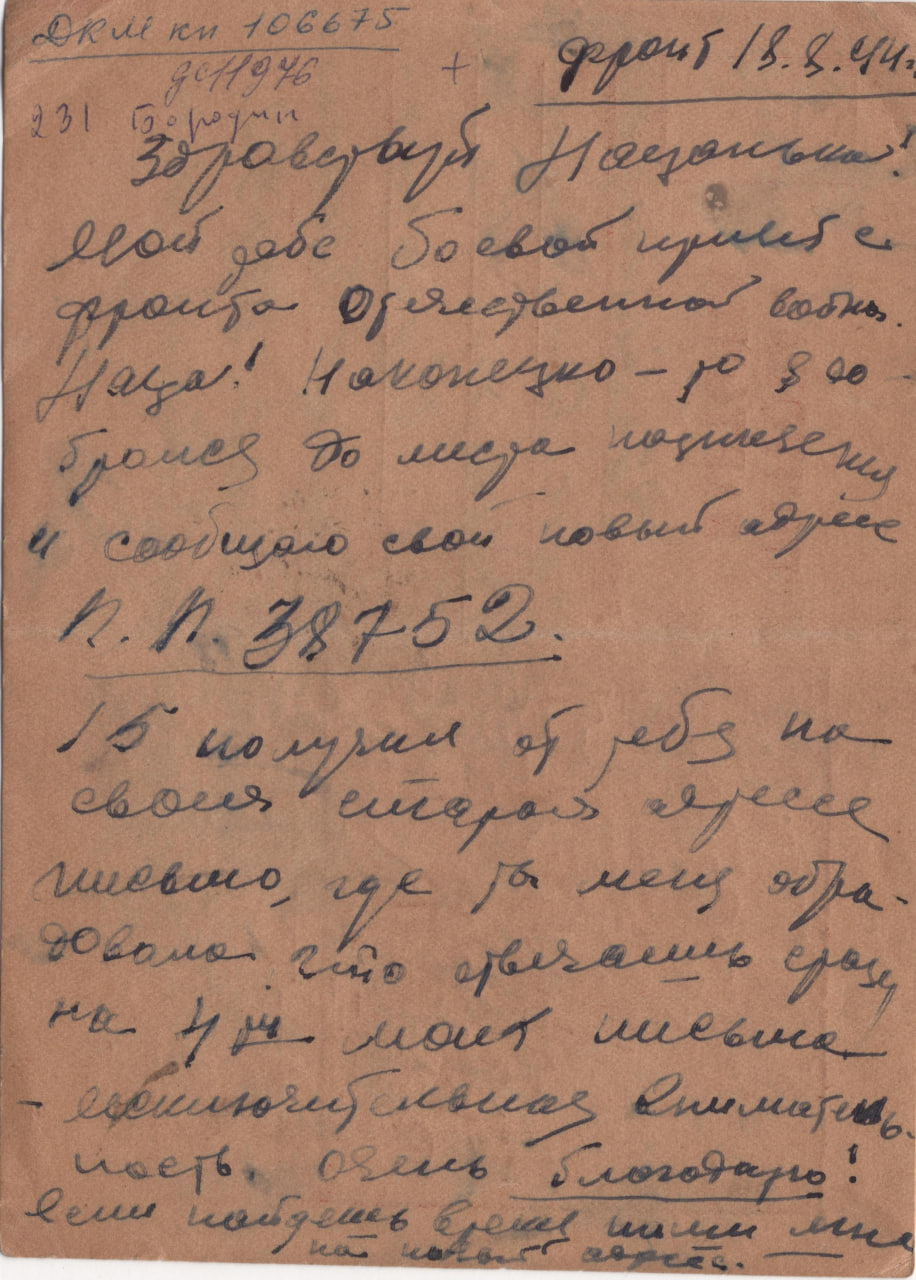 ДКМ кп 106675
дс11976
231 Бородин
+
фронт 18.8.44г.
Здравствуй Наданька!
Мой тебе боевой привет с
фронта Отечественной войны.
Надя! Наконецко-то я до-
брался до места назначения
и сообщаю свой новый адрес
П.П. 38752.
15 получил от тебя на
своем старом адресе
письмо, где ты меня обра-
довала что отвечаешь сразу
на 4 моих письма
- исключительная внематель-
ность. Очень благодарю!
Если найдешь время пиши мне
на новый адрес.